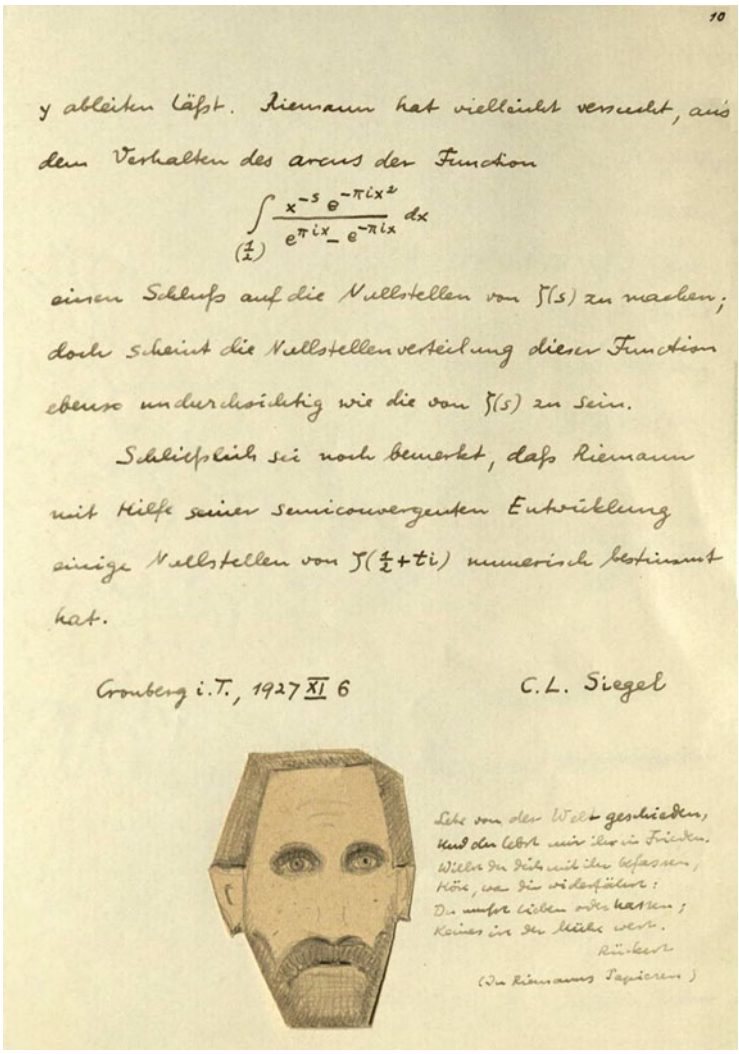 10
y ableiten läßt. Riemann hat vielleicht versucht, aus
dem Verhalten des arcus der Function
∫(1/2) x^{-s} e^{-πix²} / (e^{πix} - e^{-πix}) dx
einen Schluß auf die Nullstellen von ζ(s) zu machen;
doch scheint die Nullstellenverteilung dieser Function
ebenso undurchsichtig wie die von ζ(s) zu sein.
Schließlich sei noch bemerkt, daß Riemann
mit Hilfe seiner semiconvergenten Entwicklung
einige Nullstellen von ζ(1/2+ti) numerisch bestimmt
hat.
Cronberg i.T., 1927 XI 6
C.L. Siegel
Lebe von der Welt geschieden,
Und du lebst mir ihr in Frieden.
Willst du dich mit ihr befassen,
Höre, was dir widerfährt:
Du mußt lieben oder hassen;
Keines ist der Mühe wert.
Rückert
(In Riemanns Papieren)